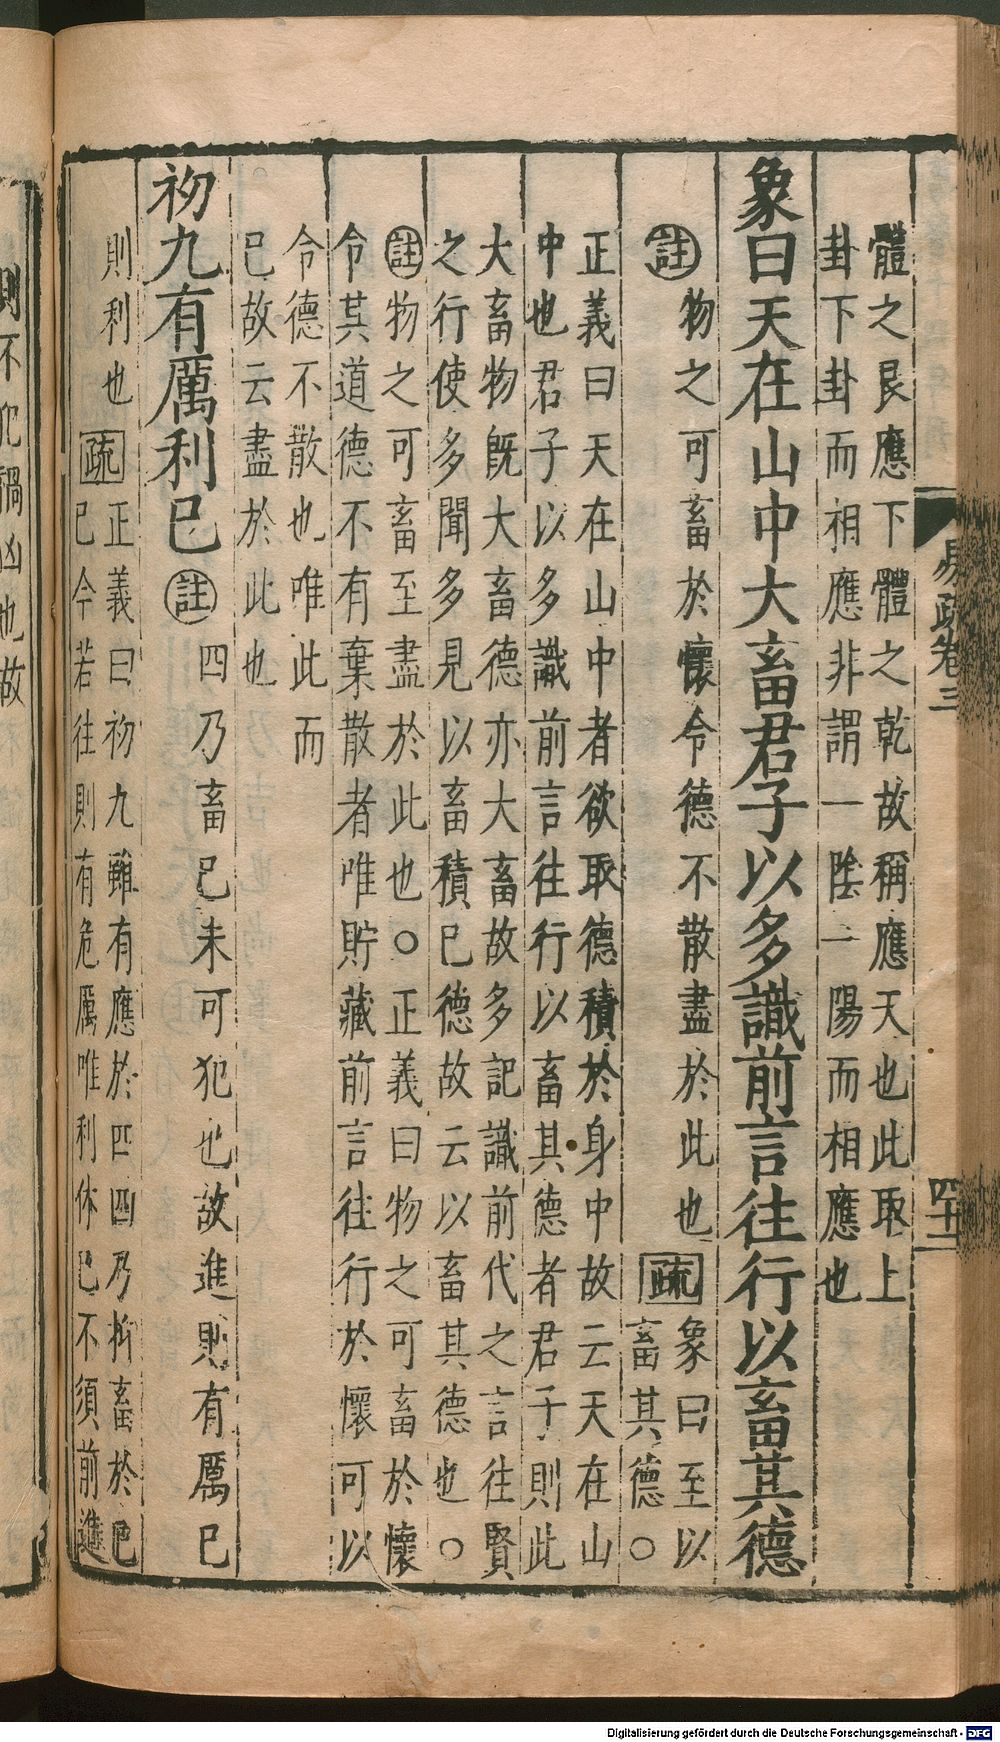 易疏卷三
四十二
體之艮應下體之乾故稱應天也此取上
卦下卦而相應非謂一陰一陽而相應也
象曰天在山中大畜君子以多識前言往行以畜其德
註物之可畜於懷令德不散盡於此也疏象曰至以
畜其德○
正義曰天在山中者欲取德積於身中故云天在山
中也君子以多識前言往行以畜其德者君子則此
大畜物既大畜德亦大畜故多記識前代之言往賢
之行使多聞多見以畜積已德故云以畜其德也○
註物之可畜至盡於此也○正義曰物之可畜於懷
令其道德不有棄散者唯貯藏前言往行於懷可以
令德不散也唯此而
已故云盡於此也
初九有厲利已註四乃畜已未可犯也故進則有厲已
則利也疏正義曰初九雖有應於四四乃抑畜於已
已今若往則有危厲唯利休已不須前進
則不犯禍凶也故
Digitalisierung gefördert durch die Deutsche Forschungsgemeinschaft - DFG